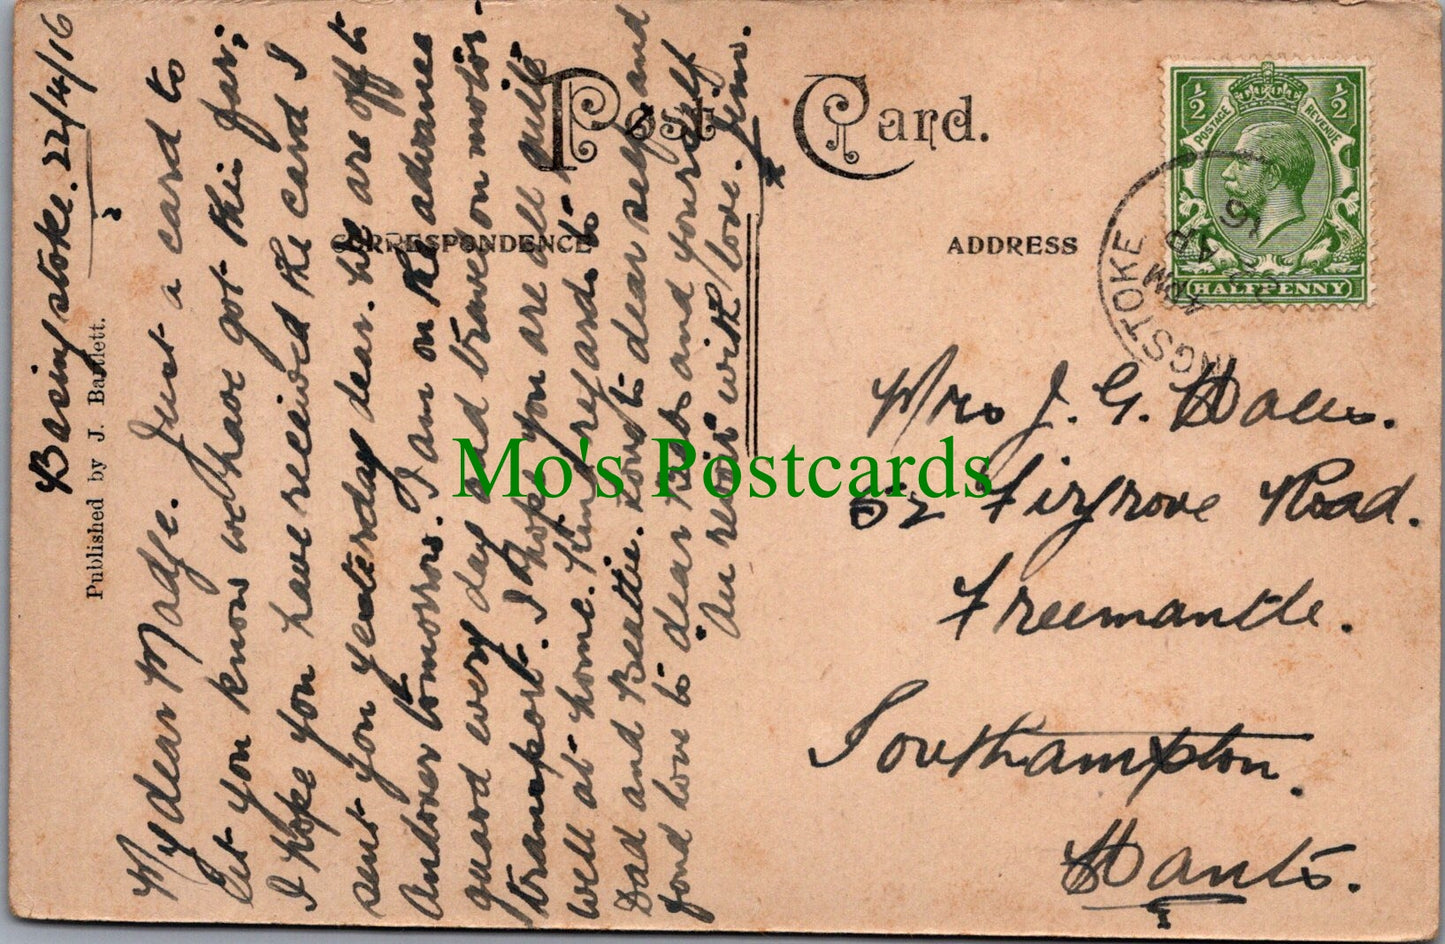 Basingstoke. 22/4/16
My dear Madge. Just a card to
let you know we have got this far;
I hope you have received the card I
sent you yesterday dear. We are off to
Andover tomorrow. I am on the advance
guard every day and travel on motor
transport. I hope you are all quite
well at home. Kind regards to
Dad and Beattie. Love to dear self and
fond love to dear Bab and yourself
Au revoir with love. Jim.
x
Published by J. Bartlett.
Post Card.
CORRESPONDENCE
ADDRESS
½ ½
POSTAGE REVENUE
HALFPENNY
NGSTOKE
AP
16
Mrs J. G.
52 Firgrove Road.
Freemantle.
Southampton.
Hants.
Mo's Postcards